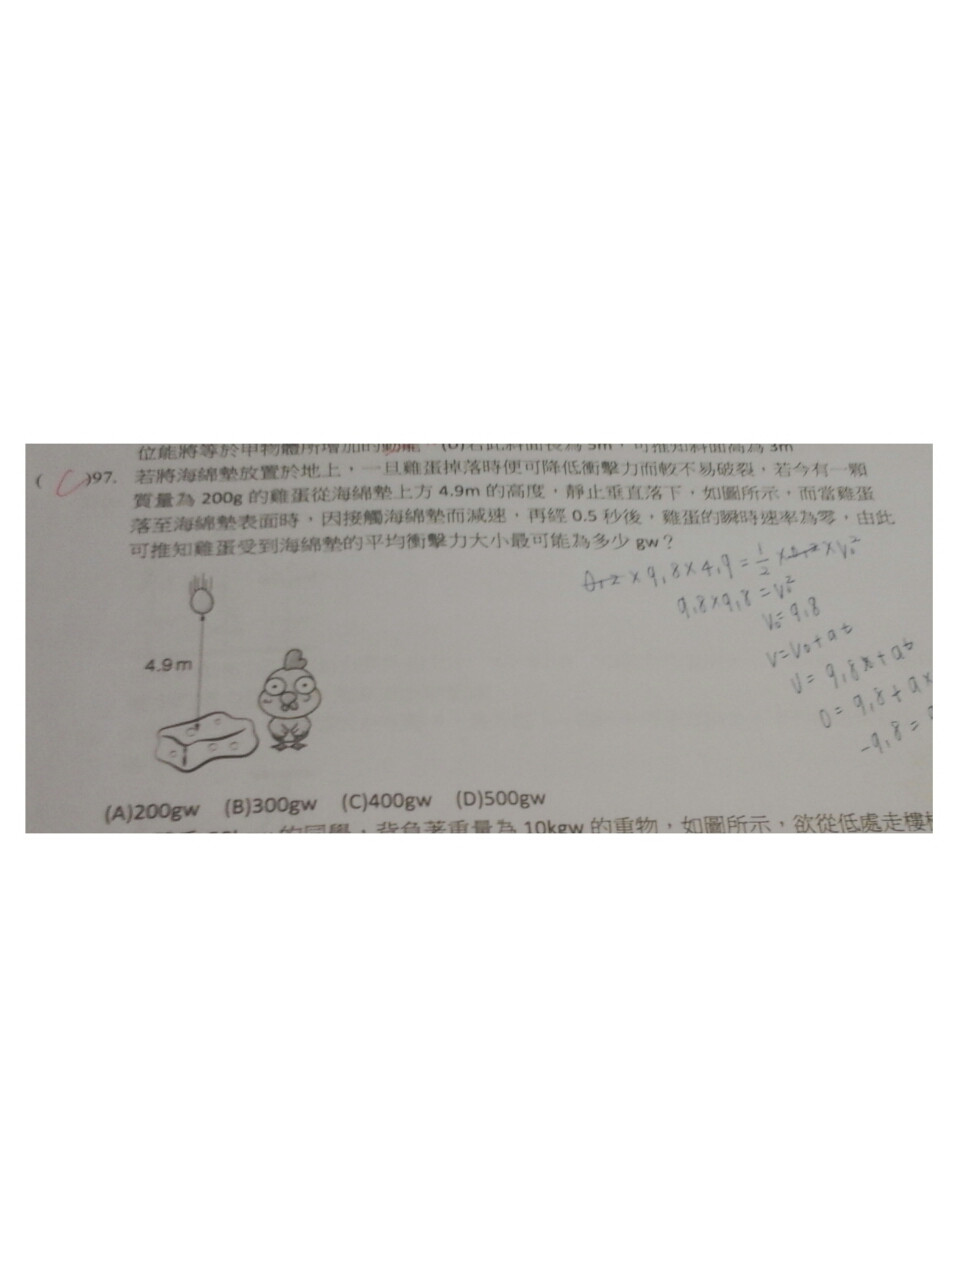 位能將等於甲物體所增加的動能 (D)若此斜面長為5m,可推知斜面高為3m
( C )97. 若將海綿墊放置於地上,一旦雞蛋掉落時便可降低衝擊力而較不易破裂,若今有一顆
質量為 200g 的雞蛋從海綿墊上方 4.9m 的高度,靜止垂直落下,如圖所示,而當雞蛋
落至海綿墊表面時,因接觸海綿墊而減速,再經 0.5 秒後,雞蛋的瞬時速率為零,由此
可推知雞蛋受到海綿墊的平均衝擊力大小最可能為多少 gw?
0.2×9.8×4.9=1/2×0.2×V₀²
9.8×9.8=V₀²
V₀=9.8
V=V₀+at
V=9.8+at
0=9.8+a×
-9.8=
4.9m
(A)200gw (B)300gw (C)400gw (D)500gw
的同學,背負著重量為 10kgw 的重物,如圖所示,欲從低處走樓